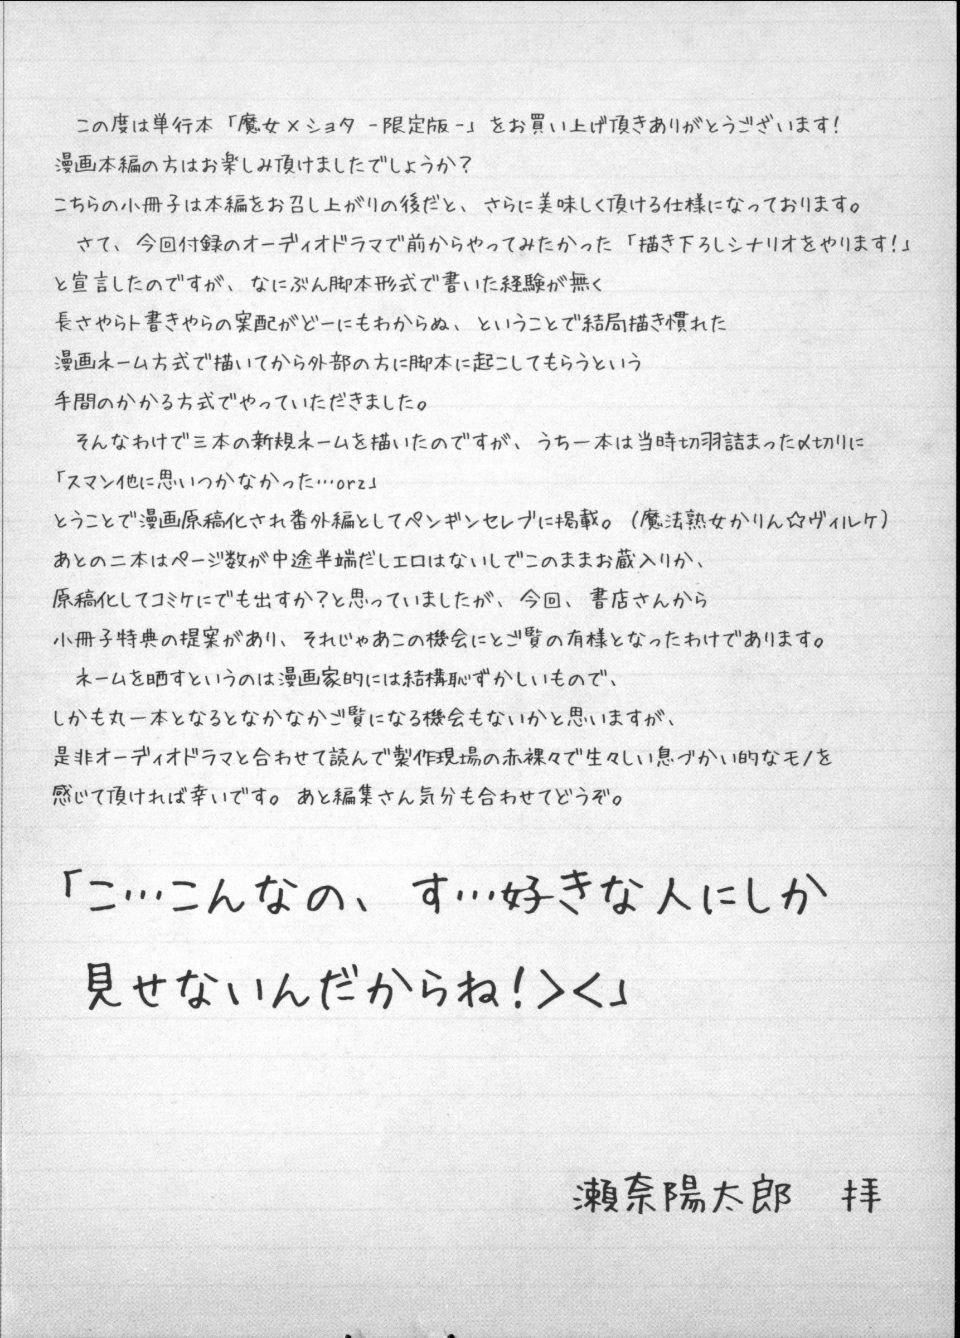 この度は単行本「魔女×ショタ -限定版-」をお買い上げ頂きありがとうございます!
漫画本編の方はお楽しみ頂けましたでしょうか?
こちらの小冊子は本編をお召し上がりの後だと、さらに美味しく頂ける仕様になっております。
さて、今回付録のオーディオドラマで前からやってみたかった「描き下ろしシナリオをやります!」
と宣言したのですが、なにぶん脚本形式で書いた経験が無く
長さやらト書きやらの案配がどーにもわからぬ、ということで結局描き慣れた
漫画ネーム方式で描いてから外部の方に脚本に起こしてもらうという
手間のかかる方式でやっていただきました。
そんなわけで三本の新規ネームを描いたのですが、うち一本は当時切羽詰まった〆切りに
「スマン他に思いつかなかった…orz」
とうことで漫画原稿化され番外編としてペンギンセレブに掲載。(魔法熟女かりん☆ヴィルケ)
あとの二本はページ数が中途半端だしエロはないしでこのままお蔵入りか、
原稿化してコミケにでも出すか?と思っていましたが、今回、書店さんから
小冊子特典の提案があり、それじゃあこの機会にとご覧の有様となったわけであります。
ネームを晒すというのは漫画家的には結構恥ずかしいもので、
しかも丸一本となるとなかなかご覧になる機会もないかと思いますが、
是非オーディオドラマと合わせて読んで製作現場の赤裸々で生々しい息づかい的なモノを
感じて頂ければ幸いです。あと編集さん気分も合わせてどうぞ。
「こ…こんなの、す…好きな人にしか
見せないんだからね!><」
瀬奈陽太郎 拝